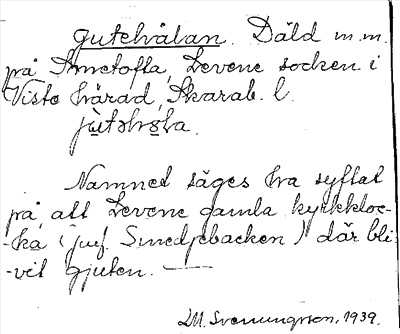 gutehålan. Däld m.m.
på Smetofta, Levene socken i
Viste härad, Skarab. l.
Namnet säges ha syftat
på, att Levene gamla kyrkkloc-
-ka (jmf. Smedjebacken) där bli-
-vit gjuten. —
M. Svenungsson, 1939.